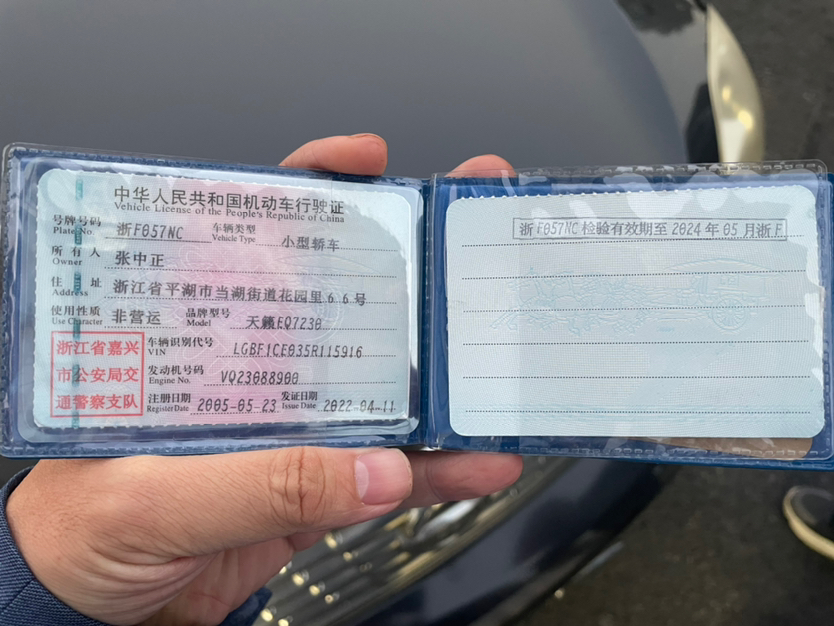 中华人民共和国机动车行驶证
Vehicle License of the People's Republic of China
号牌号码 Plate No. 浙F057NC 车辆类型 Vehicle Type 小型轿车
所有人 Owner 张中正
住址 Address 浙江省平湖市当湖街道花园里66号
使用性质 Use Character 非营运 品牌型号 Model 天籁EQ7230
车辆识别代号 VIN LGBF1CE035R115916
发动机号码 Engine No. VQ23088900
注册日期 Register Date 2005-05-23 发证日期 Issue Date 2022-04-11
浙江省嘉兴
市公安局交
通警察支队
浙F057NC检验有效期至2024年05月浙F